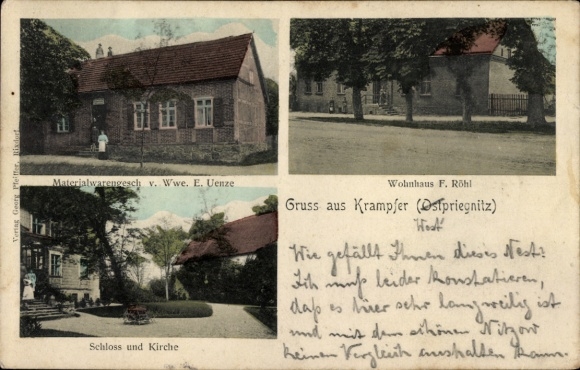 Verlag Georg Pfeiffer, Rixdorf.
Materialwarengesch v. Wwe. E. Uenze
Wohnhaus F. Röhl
Gruss aus Krampfer (Ostpriegnitz)
West
Wie gefällt Ihnen dieses Nest?
Ich muß leider konstatieren,
daß es hier sehr langweilig ist
und mit dem schönen Nitzow
keinen Vergleich aushalten kann.
Schloss und Kirche